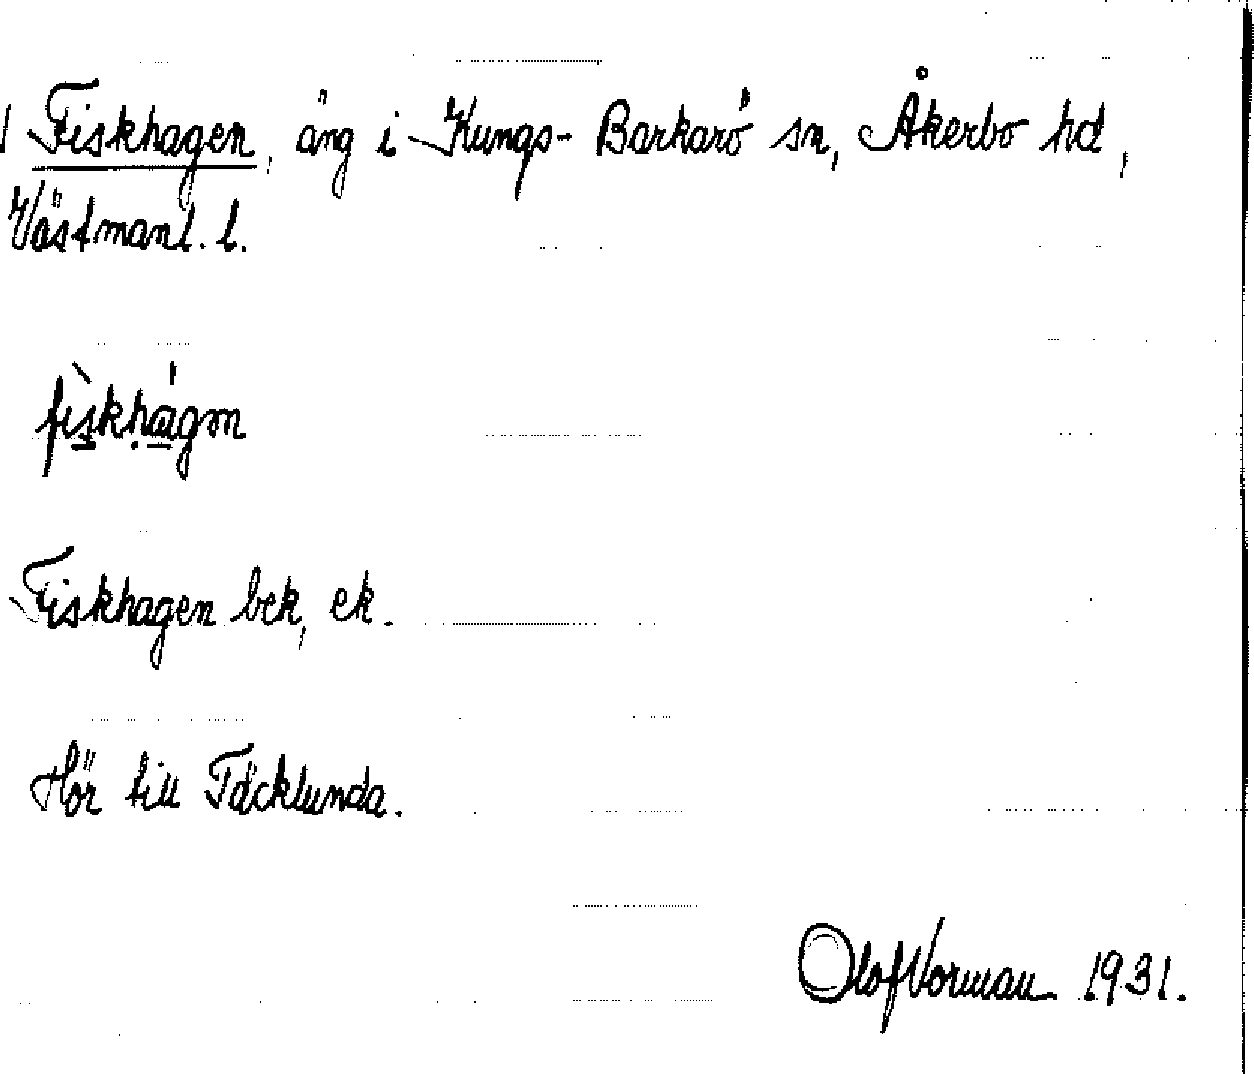 Fiskhagen, äng i Kungs-Barkarö sn, Åkerbo hd,
Västmanl. l.
fìskhágən
Fiskhagen bek, ek.
Hör till Täcklunda.
Olof Vorman 1931.